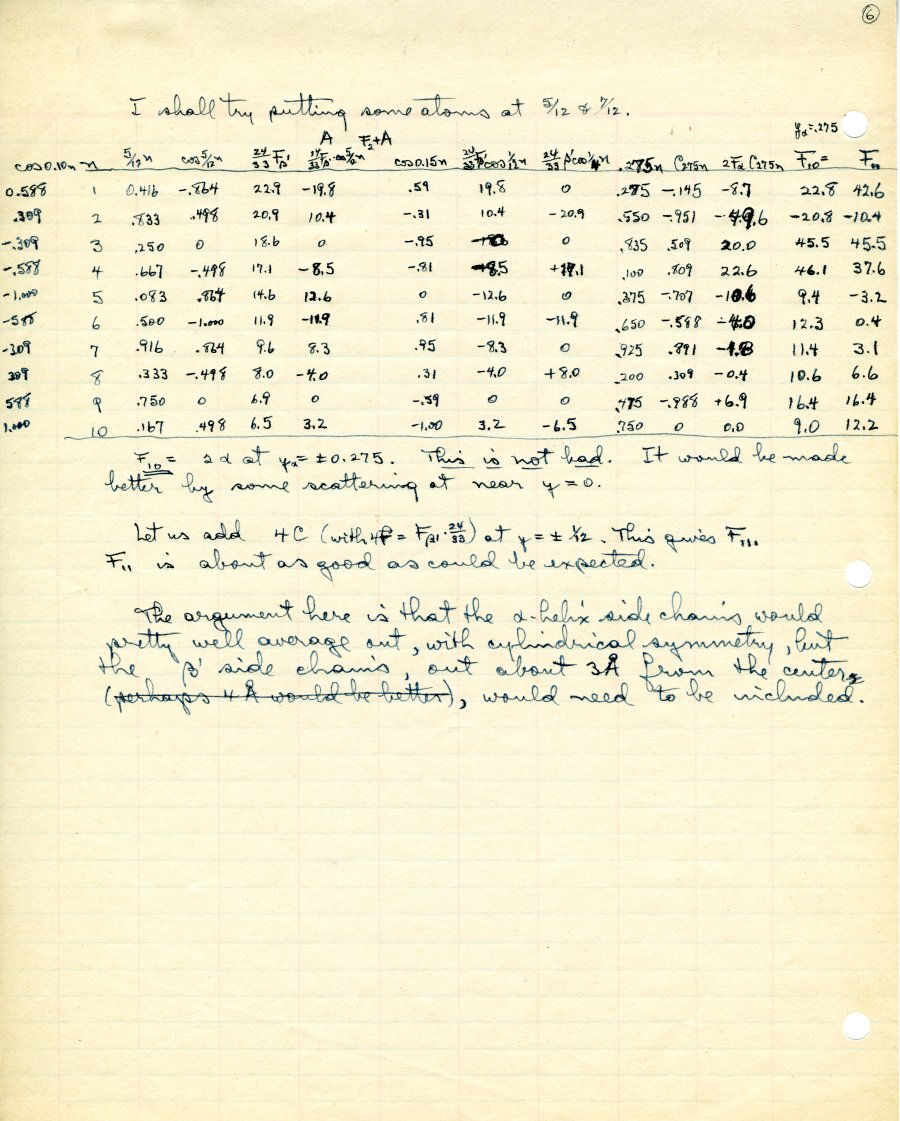 6
I shall try putting some atoms at 5/12 & 7/12.
yα=.275
A F₂+A
cos0.10n n 5/12n cos5/12n 24/33 Fβ' 24/33 Fβ' cos5/12n cos0.15n 24/33 Fβ' cos1/12n 24/33 β' cos1/4n .275n C275n 2Fα C275n F₁₀= F₁₁
0.588 1 0.416 -.864 22.9 -19.8 .59 19.8 0 .275 -.145 -8.7 22.8 42.6
.309 2 .833 .498 20.9 10.4 -.31 10.4 -20.9 .550 -.951 -20.8 -10.4
-.309 3 .250 0 18.6 0 -.95 0 0 .835 .509 20.0 45.5 45.5
-.588 4 .667 -.498 17.1 -8.5 -.81 -8.5 +17.1 .100 .809 22.6 46.1 37.6
-1.000 5 .083 .864 14.6 12.6 0 -12.6 0 .375 -.707 -10.6 9.4 -3.2
-.588 6 .500 -1.000 11.9 -11.9 .81 -11.9 -11.9 .650 -.588 -4.0 12.3 0.4
-309 7 .916 .864 9.6 8.3 .95 -8.3 0 .925 .891 -1.8 11.4 3.1
309 8 .333 -.498 8.0 -4.0 .31 -4.0 +8.0 .200 .309 -0.4 10.6 6.6
588 9 .750 0 6.9 0 -.59 0 0 .475 -.988 +6.9 16.4 16.4
1.000 10 .167 .498 6.5 3.2 -1.00 3.2 -6.5 .750 0 0.0 9.0 12.2
F₁₀ = 2α at yα = ±0.275. This is not bad. It would be made
better by some scattering at near y = 0.
Let us add 4C (with 4F = Fβ'·24/33) at y = ± 1/12. This gives F₁₁.
F₁₁ is about as good as could be expected.
The argument here is that the α-helix side chains would
pretty well average out, with cylindrical symmetry, but
the β' side chains, out about 3Å from the centers
(perhaps 4 Å would be better), would need to be included.